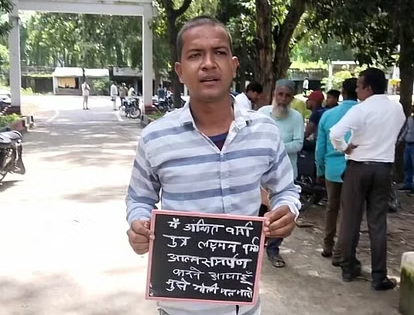 मैं अंकित वर्मा
पुत्र लक्ष्मन वर्मा
आत्म समर्पण
करने आया हूँ
मुझे गोली मत मारो